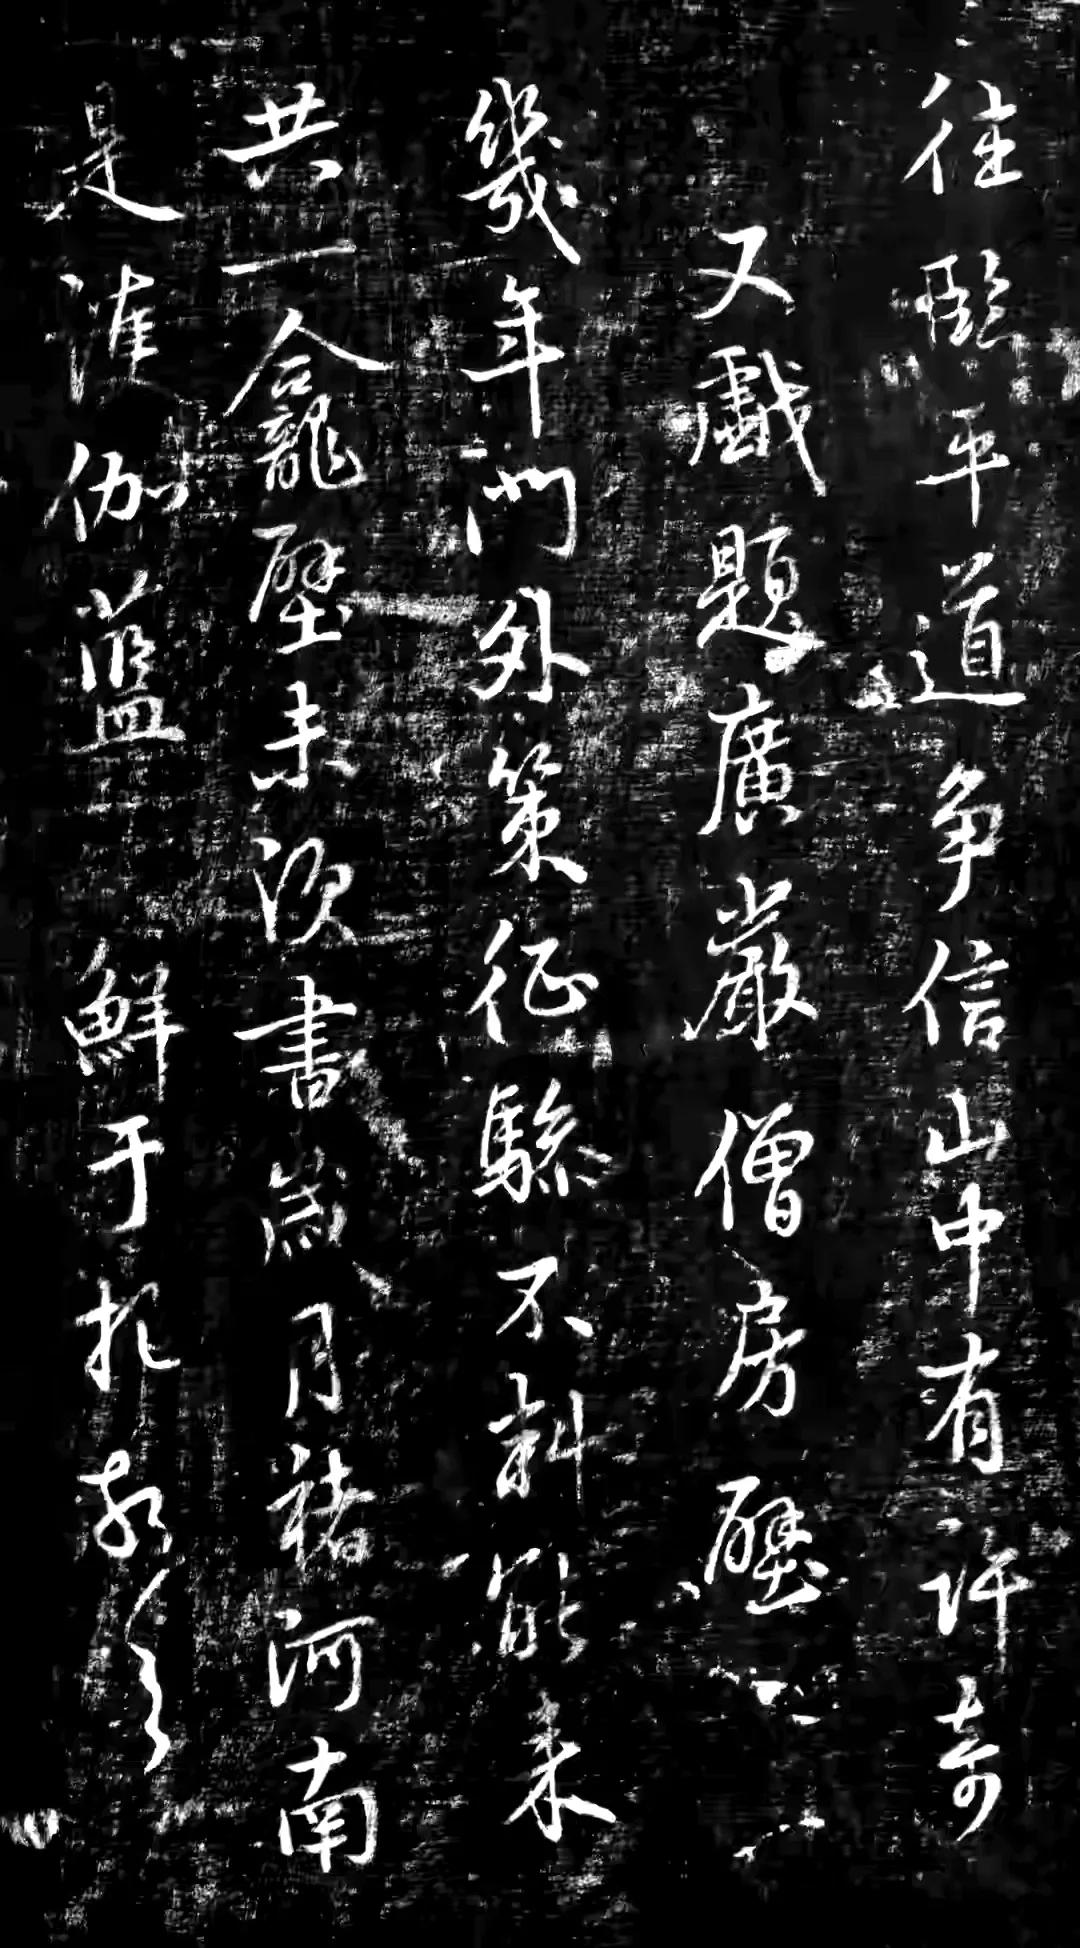 往平道爭信山中有許奇
又戲題廣嚴僧房壁
幾年門外策征驂不料能來
共一龕壁未須書歲月褚河南
是伽藍 鮮于